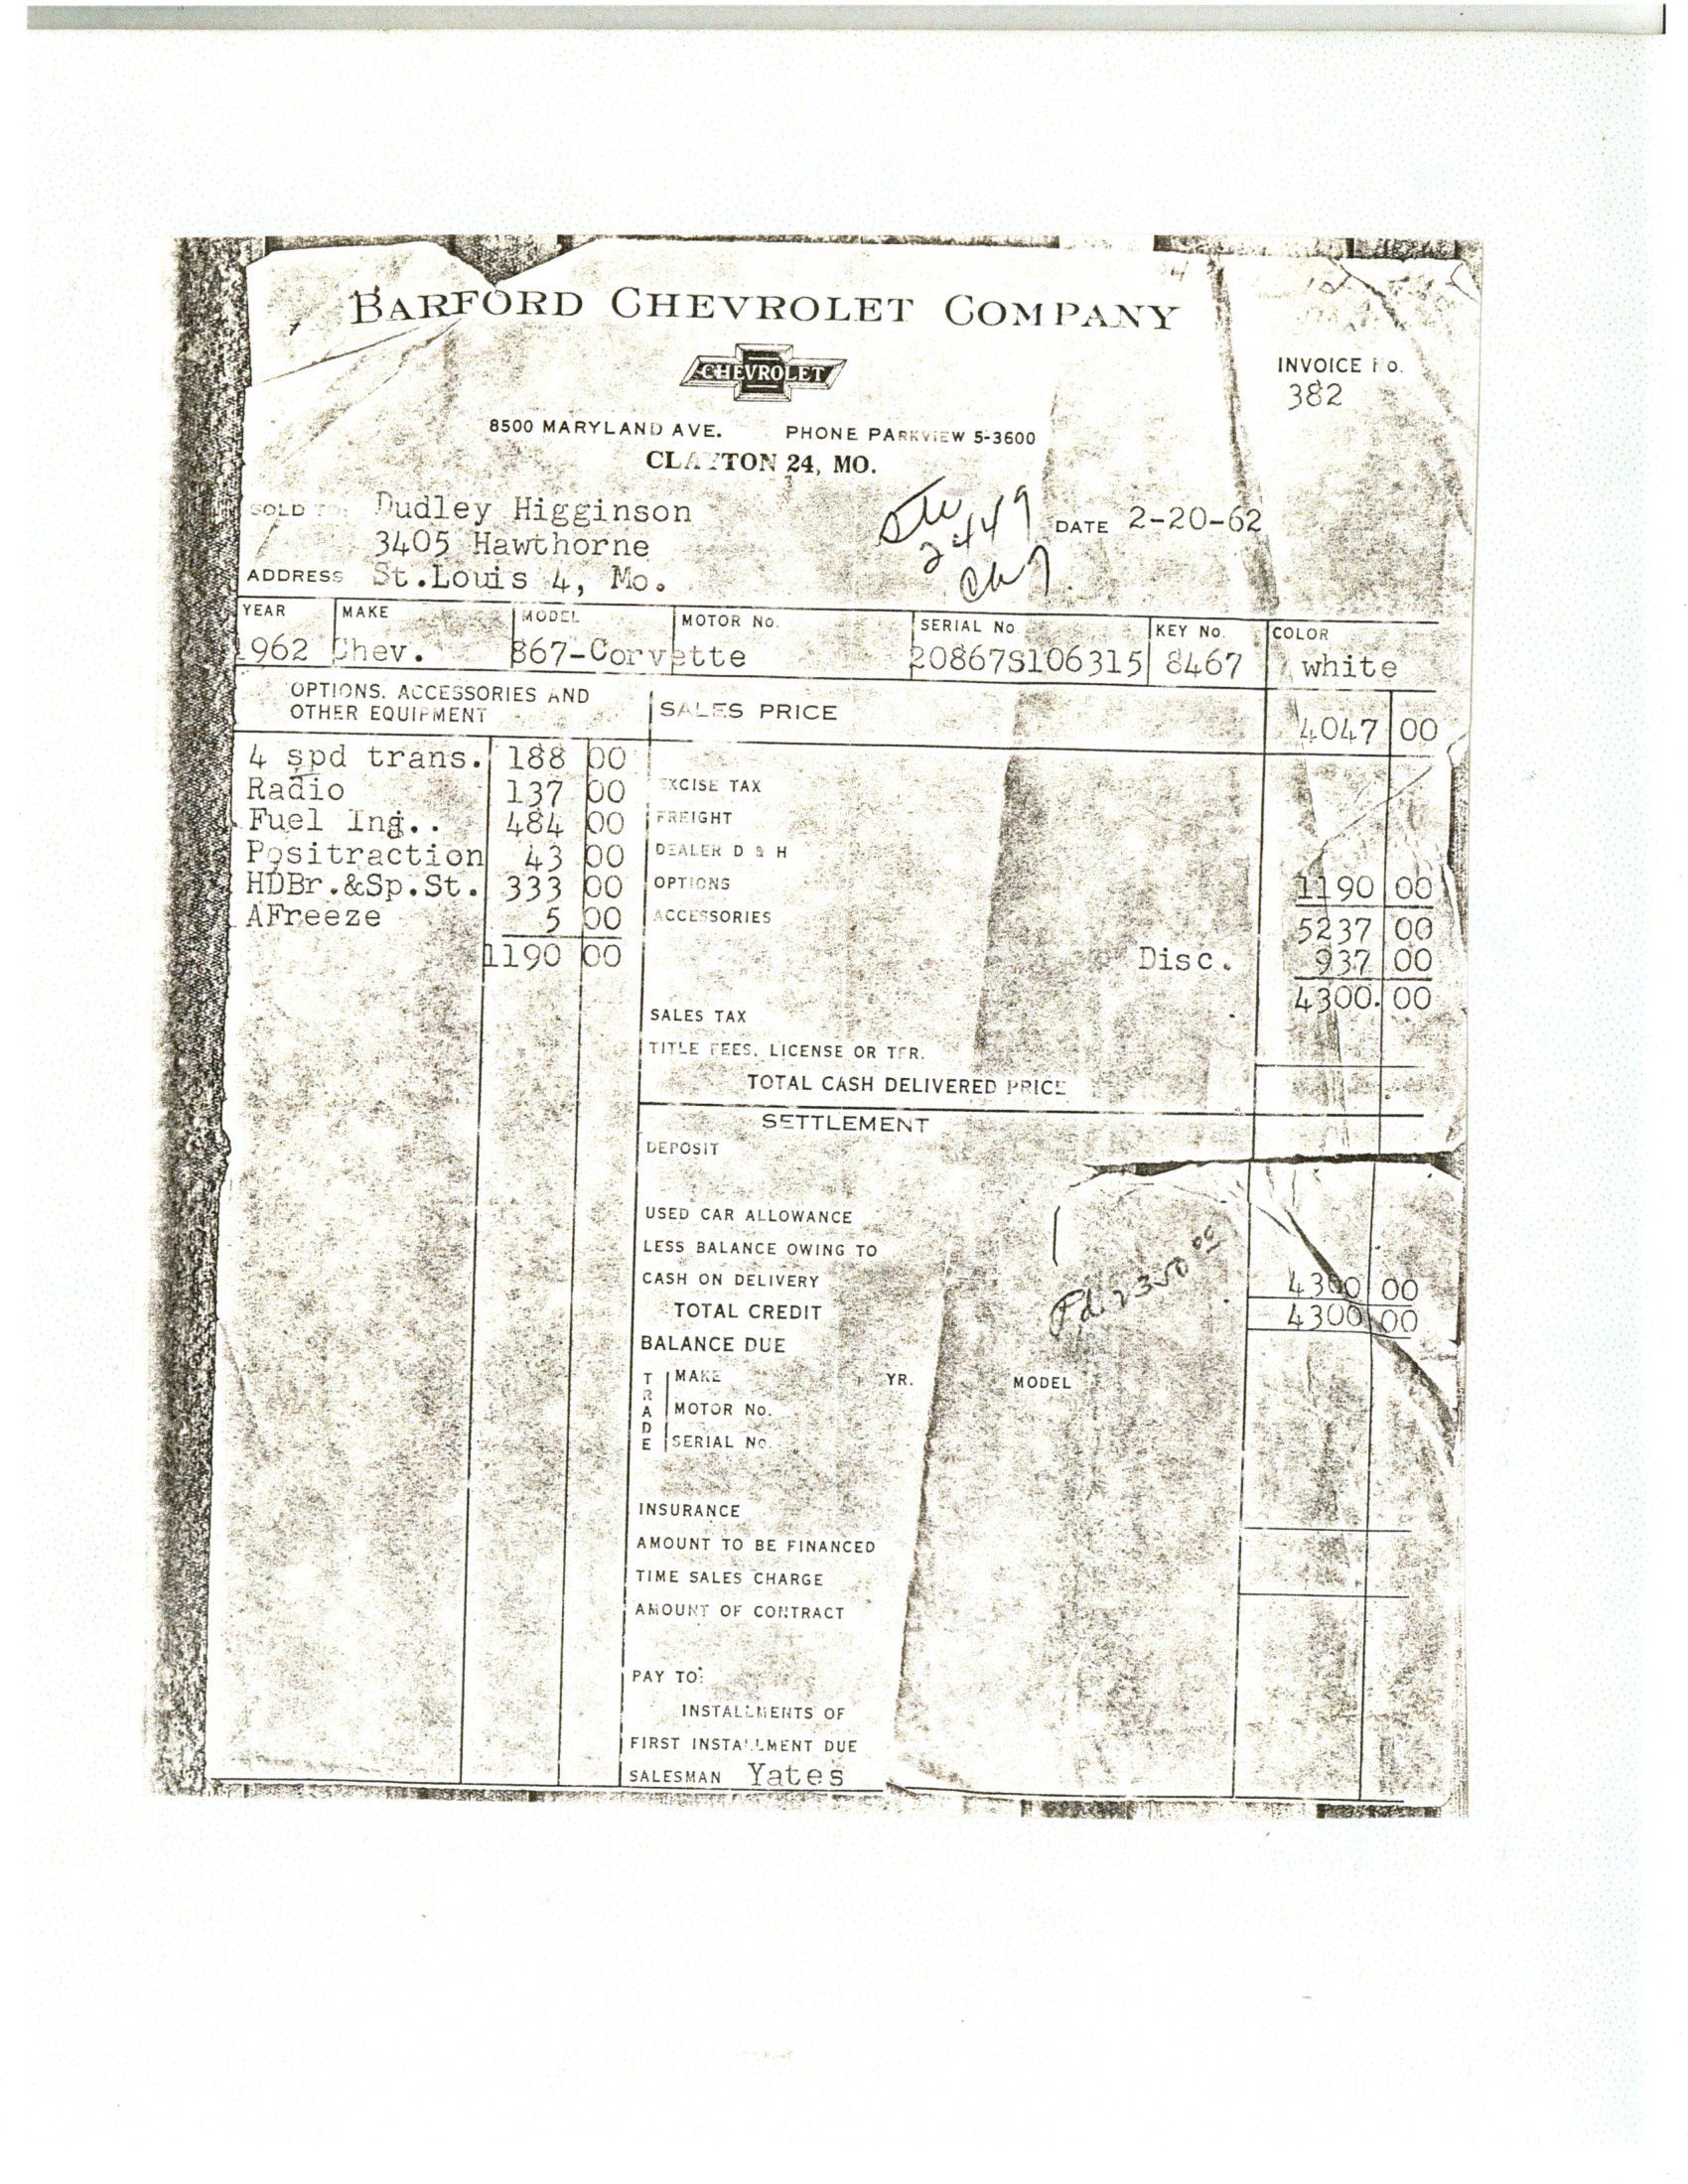 BARFORD CHEVROLET COMPANY
CHEVROLET
INVOICE No.
382
8500 MARYLAND AVE. PHONE PARKVIEW 5-3600
CLAYTON 24, MO.
SOLD TO: Dudley Higginson
3405 Hawthorne
ADDRESS St.Louis 4, Mo.
Stk 2449
DATE 2-20-62
YEAR MAKE MODEL MOTOR No. SERIAL No. KEY No. COLOR
1962 Chev. 867-Corvette 20867S106315 8467 white
OPTIONS, ACCESSORIES AND
OTHER EQUIPMENT
SALES PRICE 4047 00
4 spd trans. 188 00
Radio 137 00 EXCISE TAX
Fuel Ing.. 484 00 FREIGHT
Positraction 43 00 DEALER D & H
HDBr.&Sp.St. 333 00 OPTIONS 1190 00
AFreeze 5 00 ACCESSORIES 5237 00
1190 00 Disc. 937 00
4300.00
SALES TAX
TITLE FEES, LICENSE OR TFR.
TOTAL CASH DELIVERED PRICE
SETTLEMENT
DEPOSIT
USED CAR ALLOWANCE
LESS BALANCE OWING TO
CASH ON DELIVERY 4300 00
TOTAL CREDIT 4300 00
BALANCE DUE
TRADE
MAKE YR. MODEL
MOTOR No.
SERIAL No.
INSURANCE
AMOUNT TO BE FINANCED
TIME SALES CHARGE
AMOUNT OF CONTRACT
PAY TO:
INSTALLMENTS OF
FIRST INSTALLMENT DUE
SALESMAN Yates